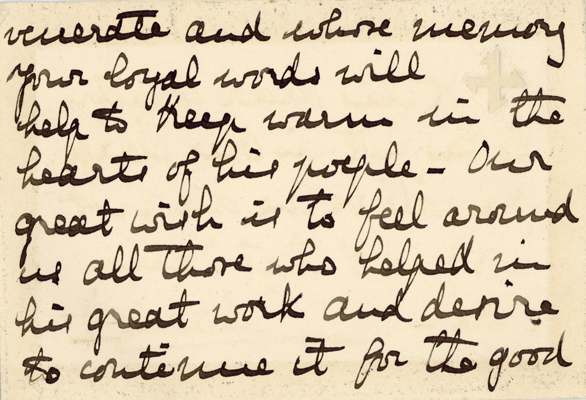 venerate and whose memory
your loyal words will
help to keep warm in the
hearts of his people - Our
great wish is to feel around
us all those who helped in
his great work and desire
to continue it for the good